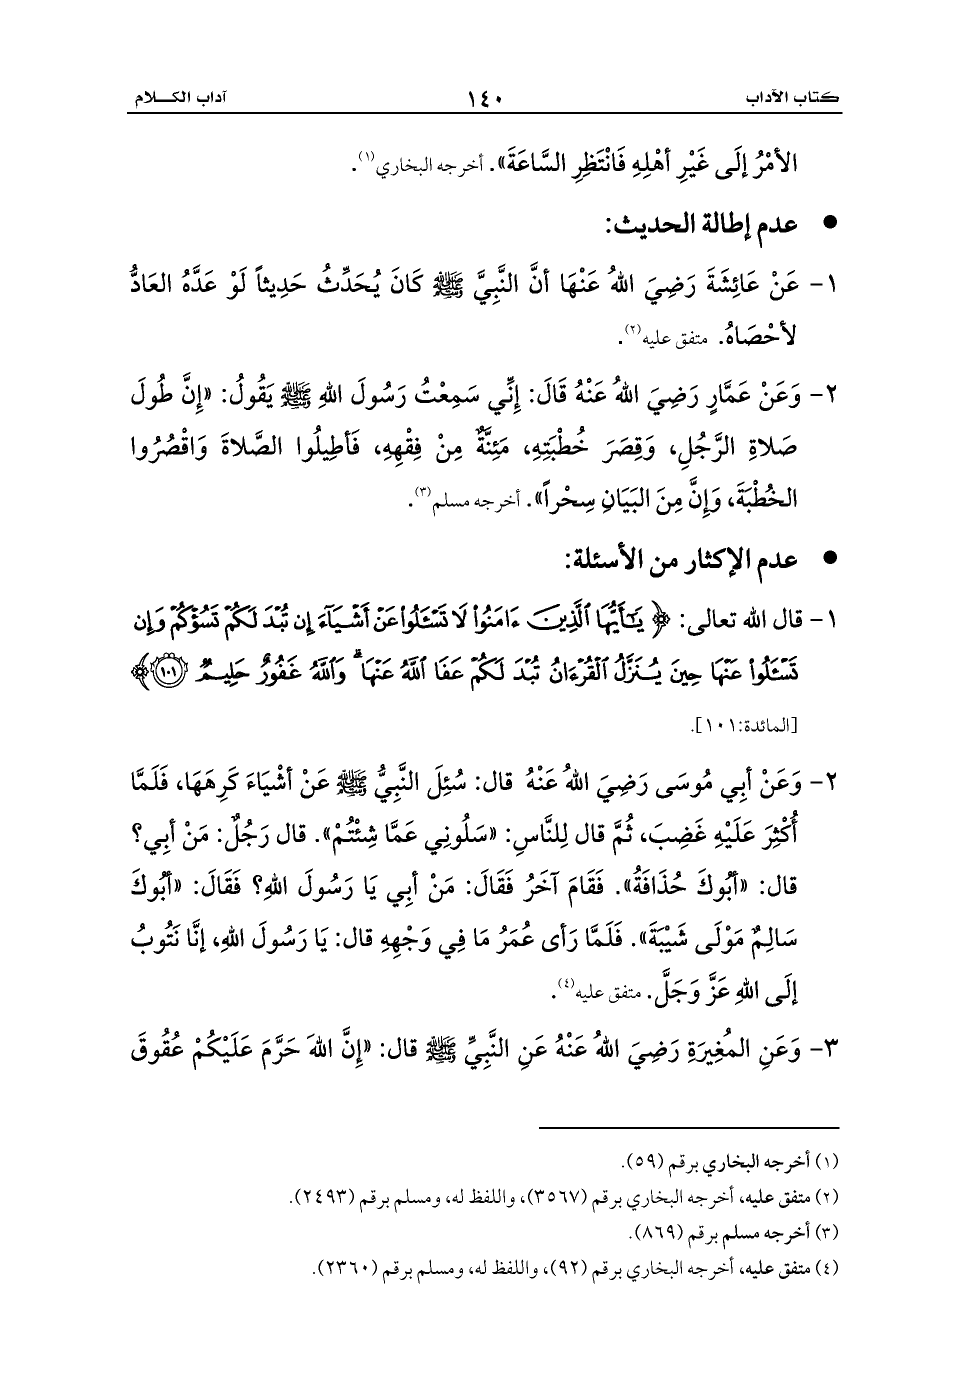 كتاب الآداب ١٤٠ آداب الكـــلام
الأمْرُ إلَى غَيْرِ أهْلِهِ فَانْتَظِرِ السَّاعَةَ». أخرجه البخاري(١).
• عدم إطالة الحديث:
١- عَنْ عَائِشَةَ رَضِيَ اللهُ عَنْهَا أنَّ النَّبِيَّ ﷺ كَانَ يُحَدِّثُ حَدِيثاً لَوْ عَدَّهُ العَادُّ
لأحْصَاهُ. متفق عليه(٢).
٢- وَعَنْ عَمَّارٍ رَضِيَ اللهُ عَنْهُ قَالَ: إنِّي سَمِعْتُ رَسُولَ اللهِ ﷺ يَقُولُ: «إنَّ طُولَ
صَلاةِ الرَّجُلِ، وَقِصَرَ خُطْبَتِهِ، مَئِنَّةٌ مِنْ فِقْهِهِ، فَأطِيلُوا الصَّلاةَ وَاقْصُرُوا
الخُطْبَةَ، وَإنَّ مِنَ البَيَانِ سِحْراً». أخرجه مسلم(٣).
• عدم الإكثار من الأسئلة:
١- قال الله تعالى: ﴿ يَٰٓأَيُّهَا ٱلَّذِينَ ءَامَنُواْ لَا تَسْـَٔلُواْ عَنْ أَشْيَآءَ إِن تُبْدَ لَكُمْ تَسُؤْكُمْ وَإِن
تَسْـَٔلُواْ عَنْهَا حِينَ يُنَزَّلُ ٱلْقُرْءَانُ تُبْدَ لَكُمْ عَفَا ٱللَّهُ عَنْهَا ۗ وَٱللَّهُ غَفُورٌ حَلِيمٌ ١٠١ ﴾
[المائدة:١٠١].
٢- وَعَنْ أبِي مُوسَى رَضِيَ اللهُ عَنْهُ قال: سُئِلَ النَّبِيُّ ﷺ عَنْ أشْيَاءَ كَرِهَهَا، فَلَمَّا
أُكْثِرَ عَلَيْهِ غَضِبَ، ثُمَّ قال لِلنَّاسِ: «سَلُونِي عَمَّا شِئْتُمْ». قال رَجُلٌ: مَنْ أبِي؟
قال: «أبُوكَ حُذَافَةُ». فَقَامَ آخَرُ فَقَالَ: مَنْ أبِي يَا رَسُولَ اللهِ؟ فَقَالَ: «أبُوكَ
سَالِمٌ مَوْلَى شَيْبَةَ». فَلَمَّا رَأى عُمَرُ مَا فِي وَجْهِهِ قال: يَا رَسُولَ اللهِ، إنَّا نَتُوبُ
إلَى اللهِ عَزَّ وَجَلَّ. متفق عليه(٤).
٣- وَعَنِ المُغِيرَةِ رَضِيَ اللهُ عَنْهُ عَنِ النَّبِيِّ ﷺ قال: «إنَّ اللهَ حَرَّمَ عَلَيْكُمْ عُقُوقَ
(١) أخرجه البخاري برقم (٥٩).
(٢) متفق عليه، أخرجه البخاري برقم (٣٥٦٧)، واللفظ له، ومسلم برقم (٢٤٩٣).
(٣) أخرجه مسلم برقم (٨٦٩).
(٤) متفق عليه، أخرجه البخاري برقم (٩٢)، واللفظ له، ومسلم برقم (٢٣٦٠).